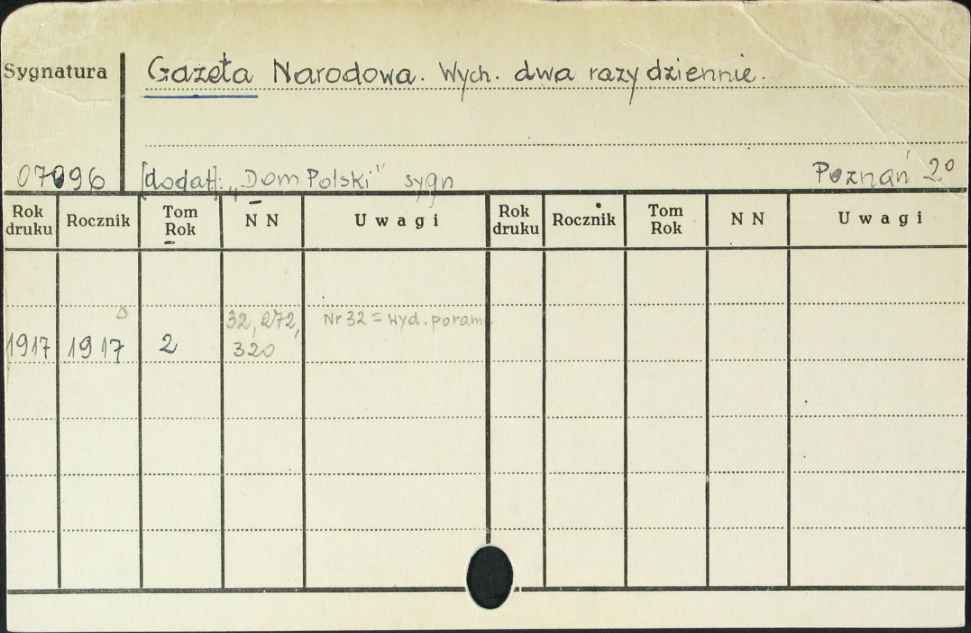 Sygnatura Gazeta Narodowa. Wych. dwa razy dziennie.
07096 [dodat]: „Dom Polski" sygn Poznań 2°
Rok druku Rocznik Tom Rok NN Uwagi Rok druku Rocznik Tom Rok NN Uwagi
32, 272, Nr 32 = wyd. poran
1917 1917 2 320